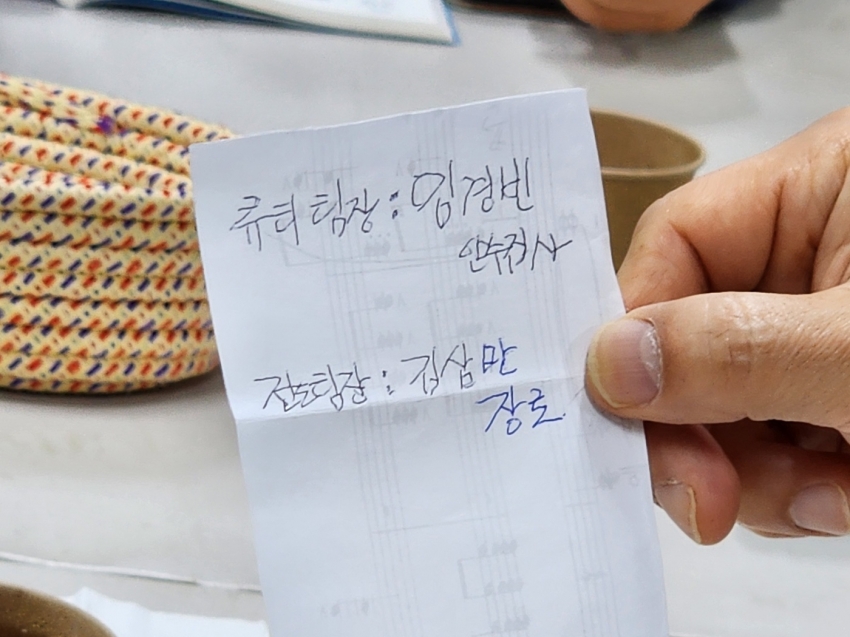 큐티 팀장 : 임경빈
안수집사
전도팀장 : 김삼만
장로.